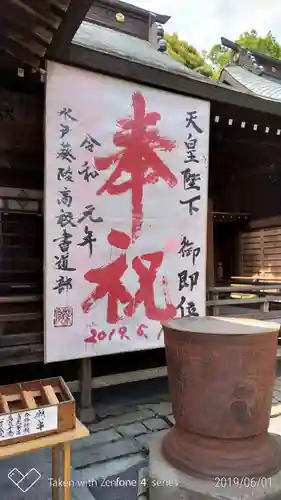 天皇陛下 御即位
奉祝
令和元年
2019.5.1
水戸葵陵高校書道部
Taken with ZenFone 4
2019/06/01